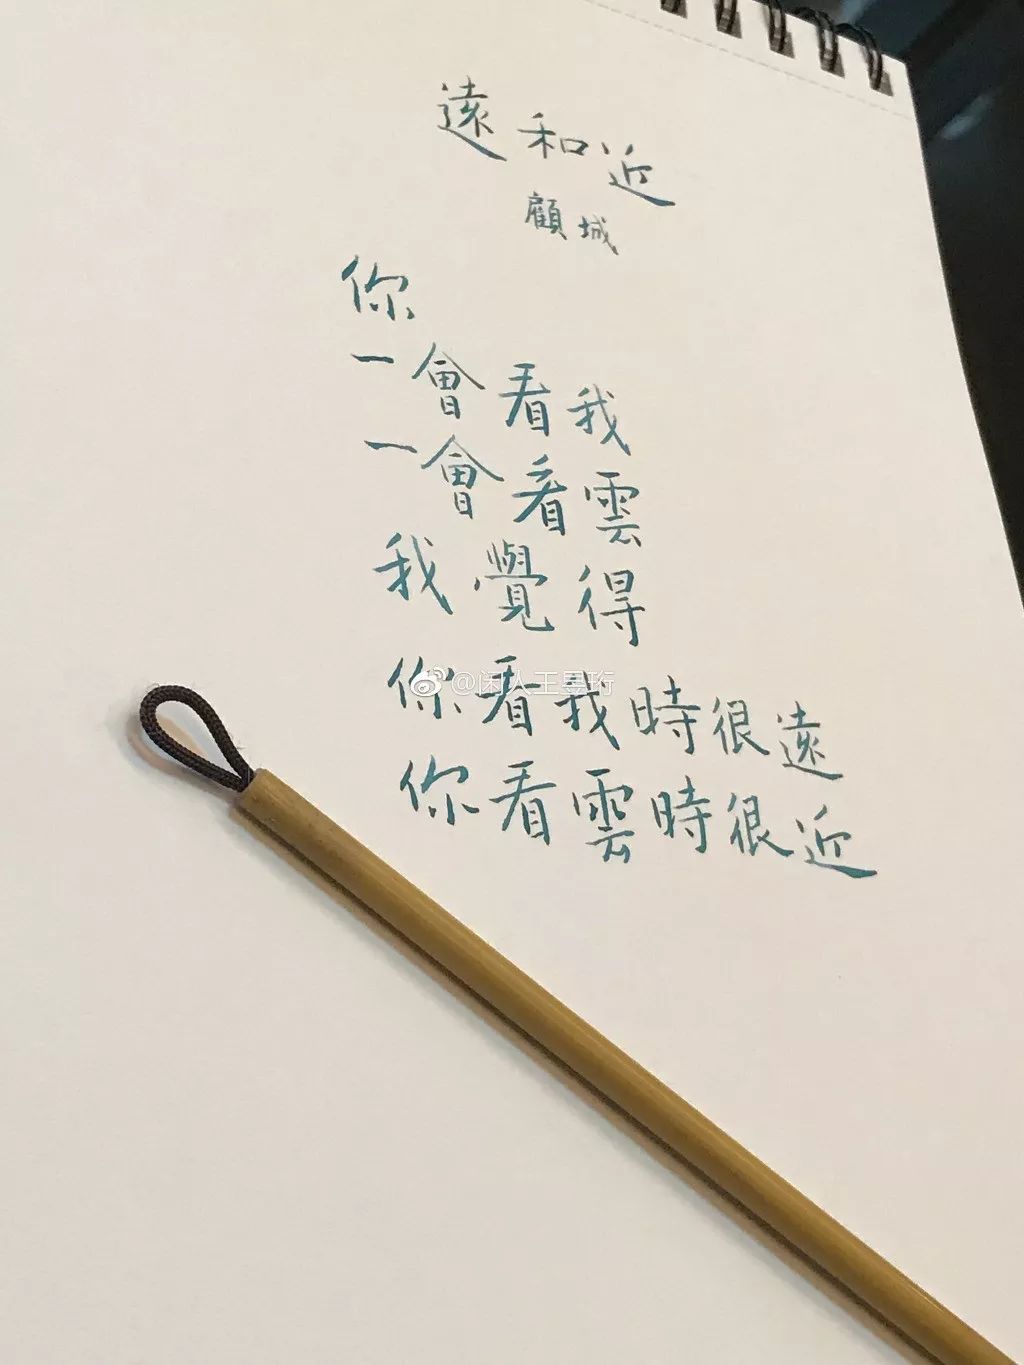 遠和近
顧城
你
一會看我
一會看雲
我覺得
@闲人王昱珩
你看我時很遠
你看雲時很近